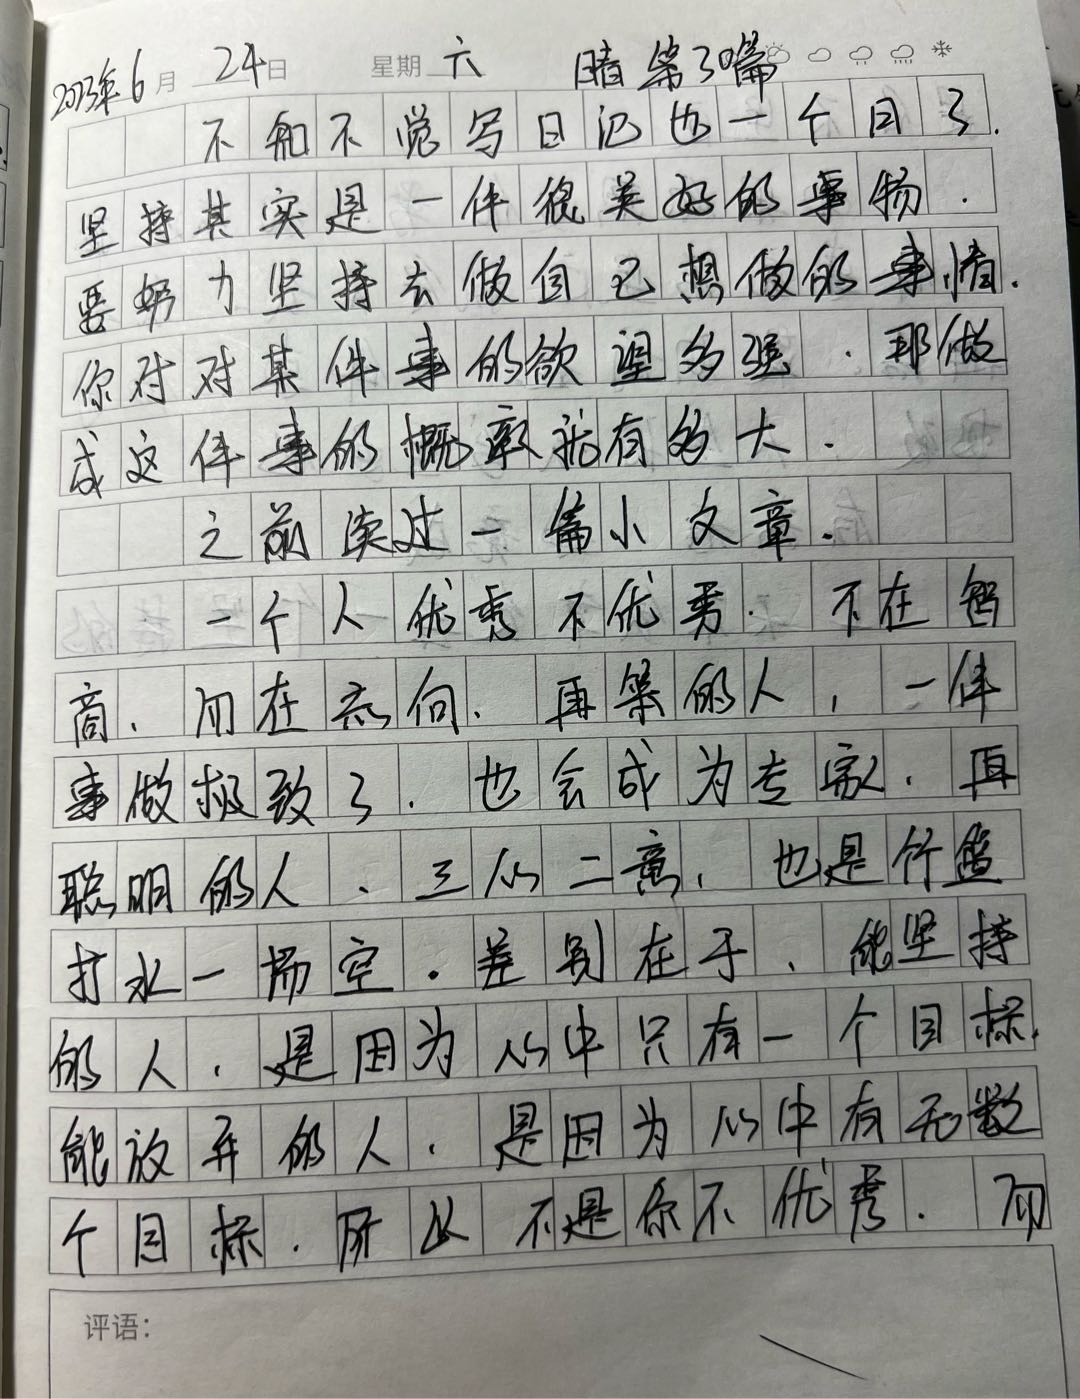 2023年6月 24日 星期 六 晴 第30篇
不知不觉写日记也一个月了.
坚持其实是一件很美好的事物.
要努力坚持去做自己想做的事情.
你对对某件事的欲望多强.那做
成这件事的概率就有多大.
之前读过一篇小文章.
一个人优秀不优秀.不在智
商、而在志向.再笨的人,一件
事做极致了.也会成为专家.再
聪明的人、三心二意,也是竹篮
打水一场空.差别在于、能坚持
的人.是因为心中只有一个目标.
能放弃的人.是因为心中有无数
个目标.所以不是你不优秀.而
评语: